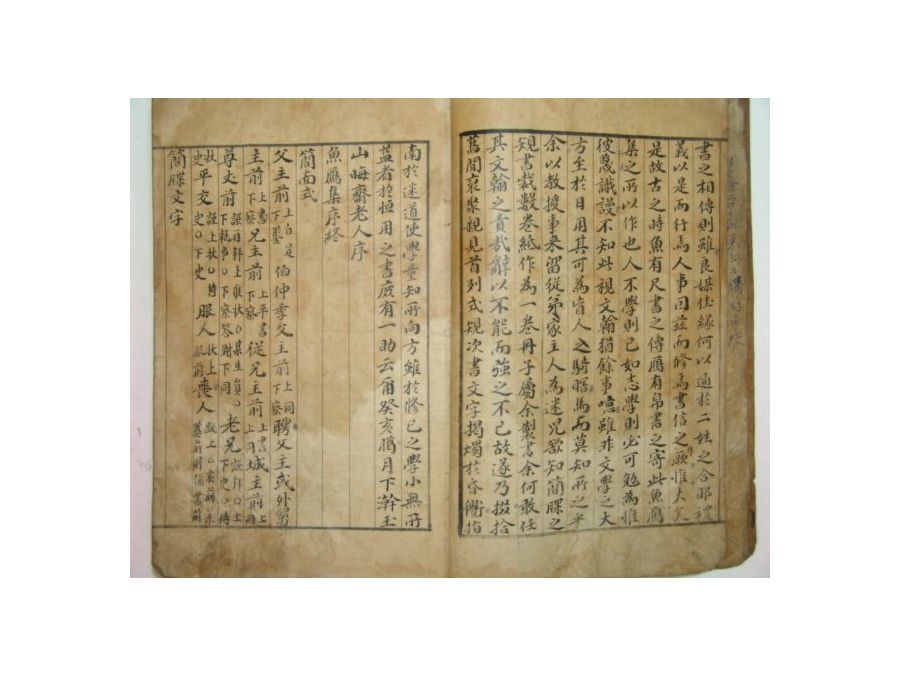 書之相傳則雖良媒佳緣何以通於二姓之合耶禮
義以是而行焉人事因玆而修焉書信之厥惟大矣
是故古之時魚有尺書之傳鴈有帛書之寄此魚鴈
集之所以作也人不學則已如志學則必可勉爲惟
彼蔑識謾不知此視文翰猶餘事噫雖非文學之大
方至於日用其可爲盲人之騎瞎馬而莫知所之乎
余以教據事來留從弟家主人為迷児欲知簡牒之
規書裁數卷紙作為一卷冊子属余製書余何敢任
其文翰之責哉辭以不能而強之不已故遂乃掇拾
舊聞裒聚親見首列式規次書文字揭燭於昏衢指
南於迷道使學童知所向方雖於修已之學小無所
益者於恒用之書庶有一助云爾癸亥臘月下澣玉
山晦齋老人序
魚鴈集序終
簡面式
父主前 上白是 下鑒 伯仲季父主前 上同 下察 聘父主或外舅
主前 上書 下察 兄主前 上平書 從兄主前 上書 上同 城主前 上
尊丈前 老兄
扶平交 服人 喪人
簡牒文字